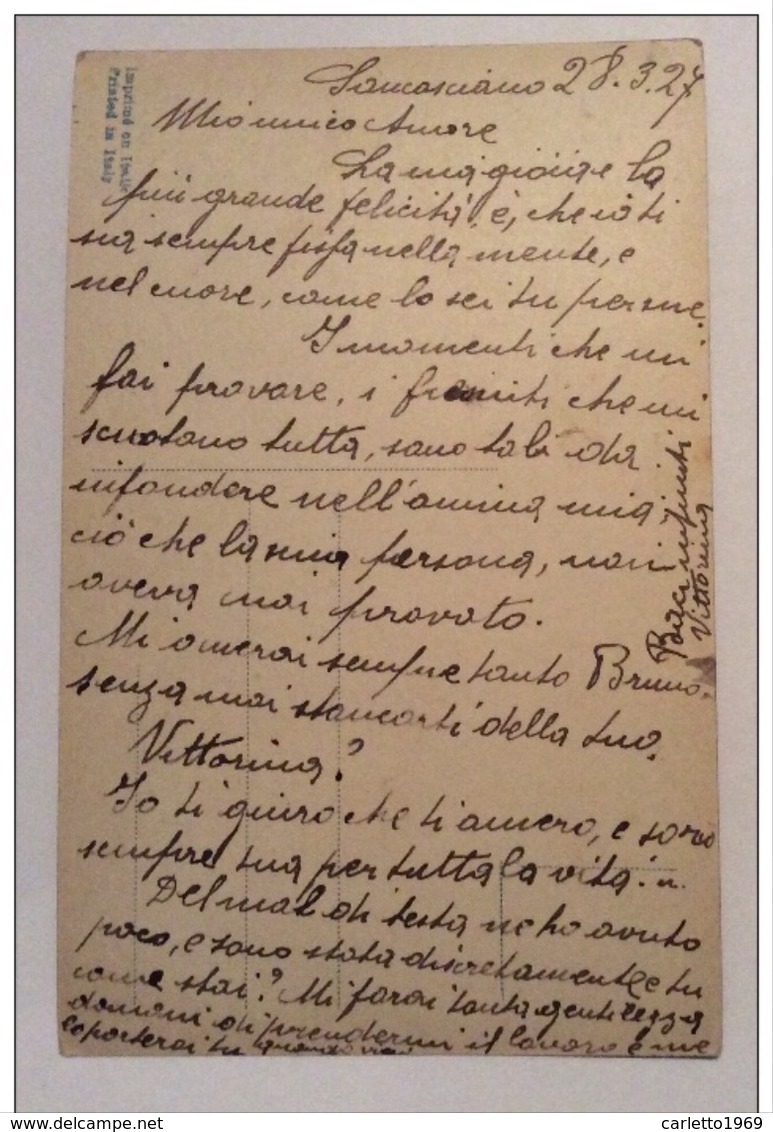 Imprimé en Italie
Printed in Italy
28.3.27
Mio unico Amore
La mia gioia e la
più grande felicità, è, che io ti
sia sempre fissa nella mente, e
nel cuore, come lo sei tu per me.
I momenti che mi
fai provare, i fremiti che mi
scuotono tutta, sono tali da
infondere nell'anima mia
ciò che la mia persona, non
aveva mai provato.
Mi amerai sempre tanto Bruno.
senza mai stancarti della tua
Vittorina?
Io ti giuro che ti amero, e sarò
sempre tua per tutta la vita!..
Del mal di testa ne ho avuto
poco, e sono stata discretamente e tu
come stai? Mi farai tanta gentilezza
domani di prendermi il lavoro e me
lo porterai tu quando vieni
Baci infiniti
Vittorina
www.delcampe.net
carletto1969